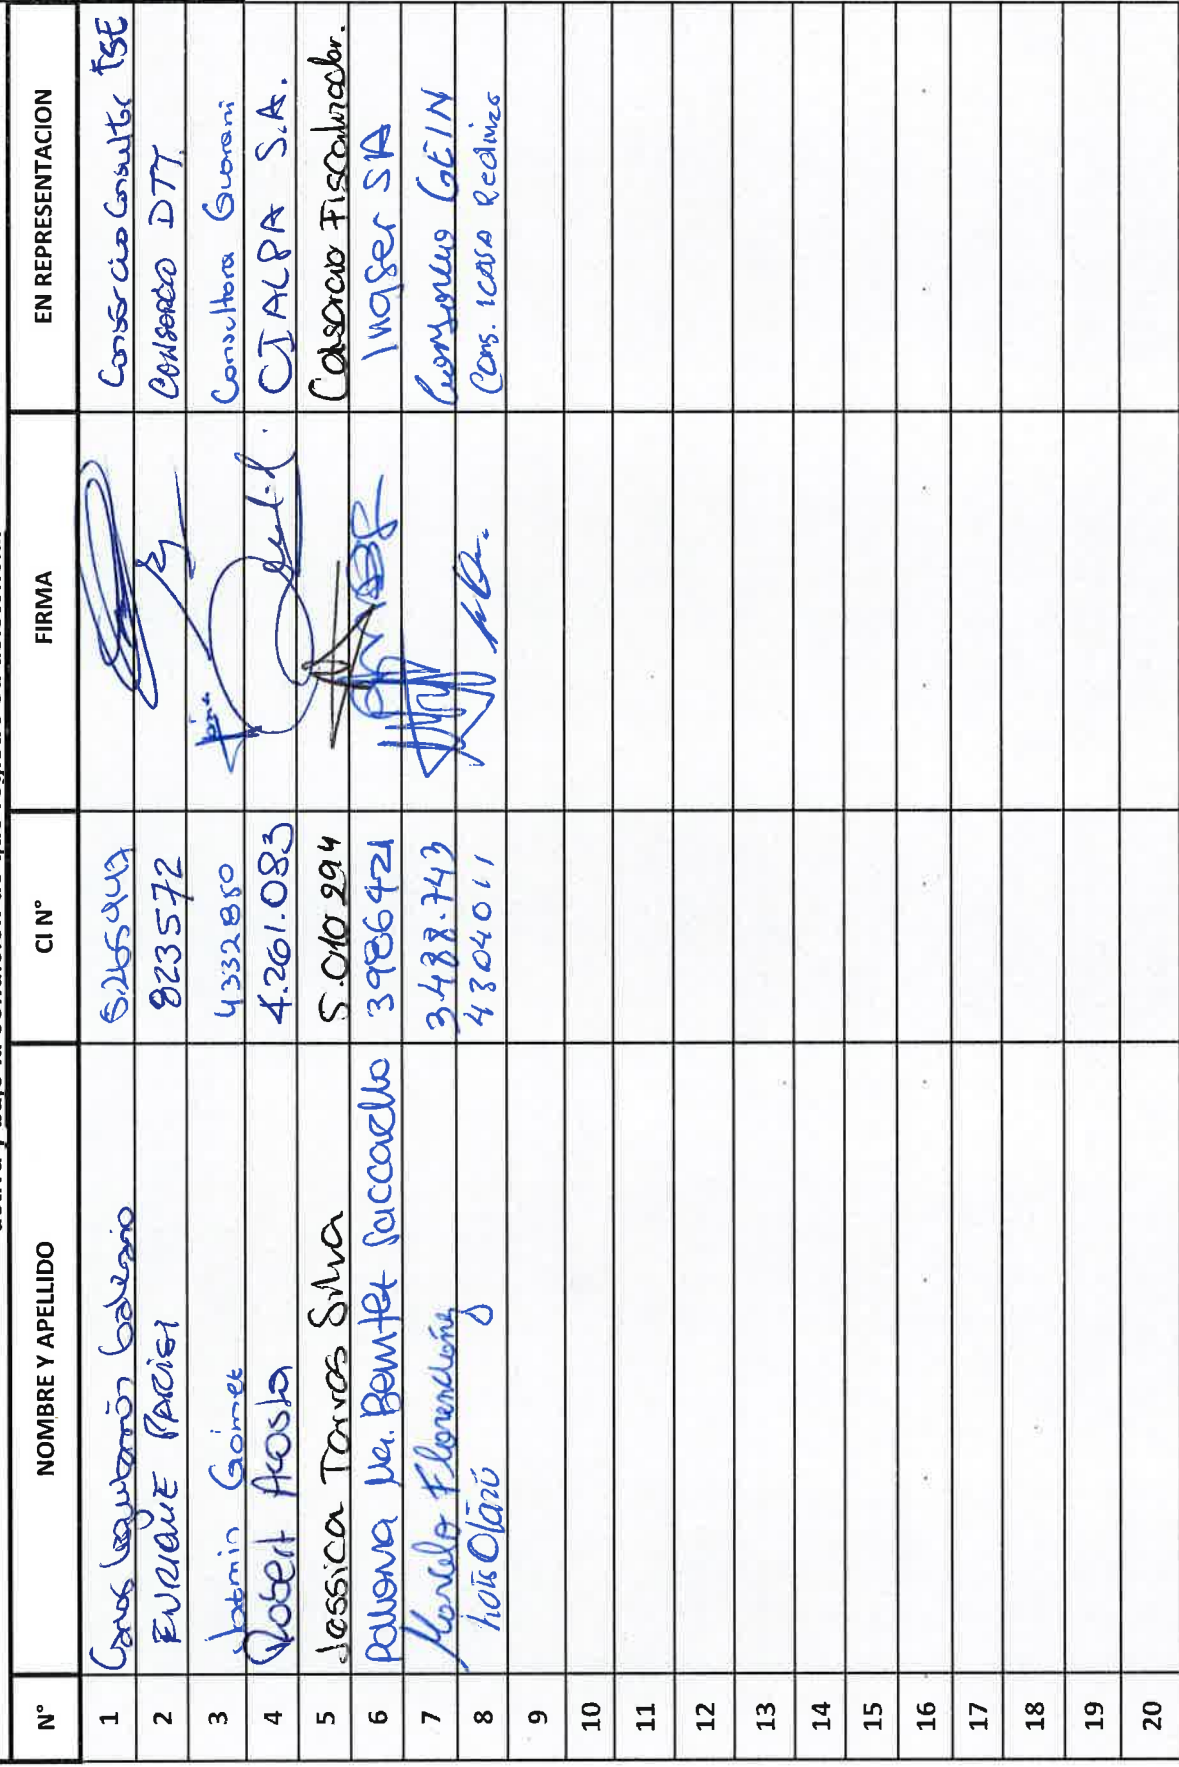 N° NOMBRE Y APELLIDO CI N° FIRMA EN REPRESENTACION
1 Carlos 5.265.447 Consorcio Consultor TSE
2 ENRIQUE PARISI 823572 CONSORCIO DTT
3 Jazmin Gómez 4332850 Consultora Guarani
4 Robert Acosta 4.261.083 CIALPA S.A.
5 Jessica Torres Silva 5.010 294 Consorcio Fiscalizador.
6 Paloma Ma. Benitez Saccarello 3986421 Ingser SA
7 Marcelo 3.488.743 Consorcio GEIN
8 4304011 Cons.
9
10
11
12
13
14
15
16
17
18
19
20